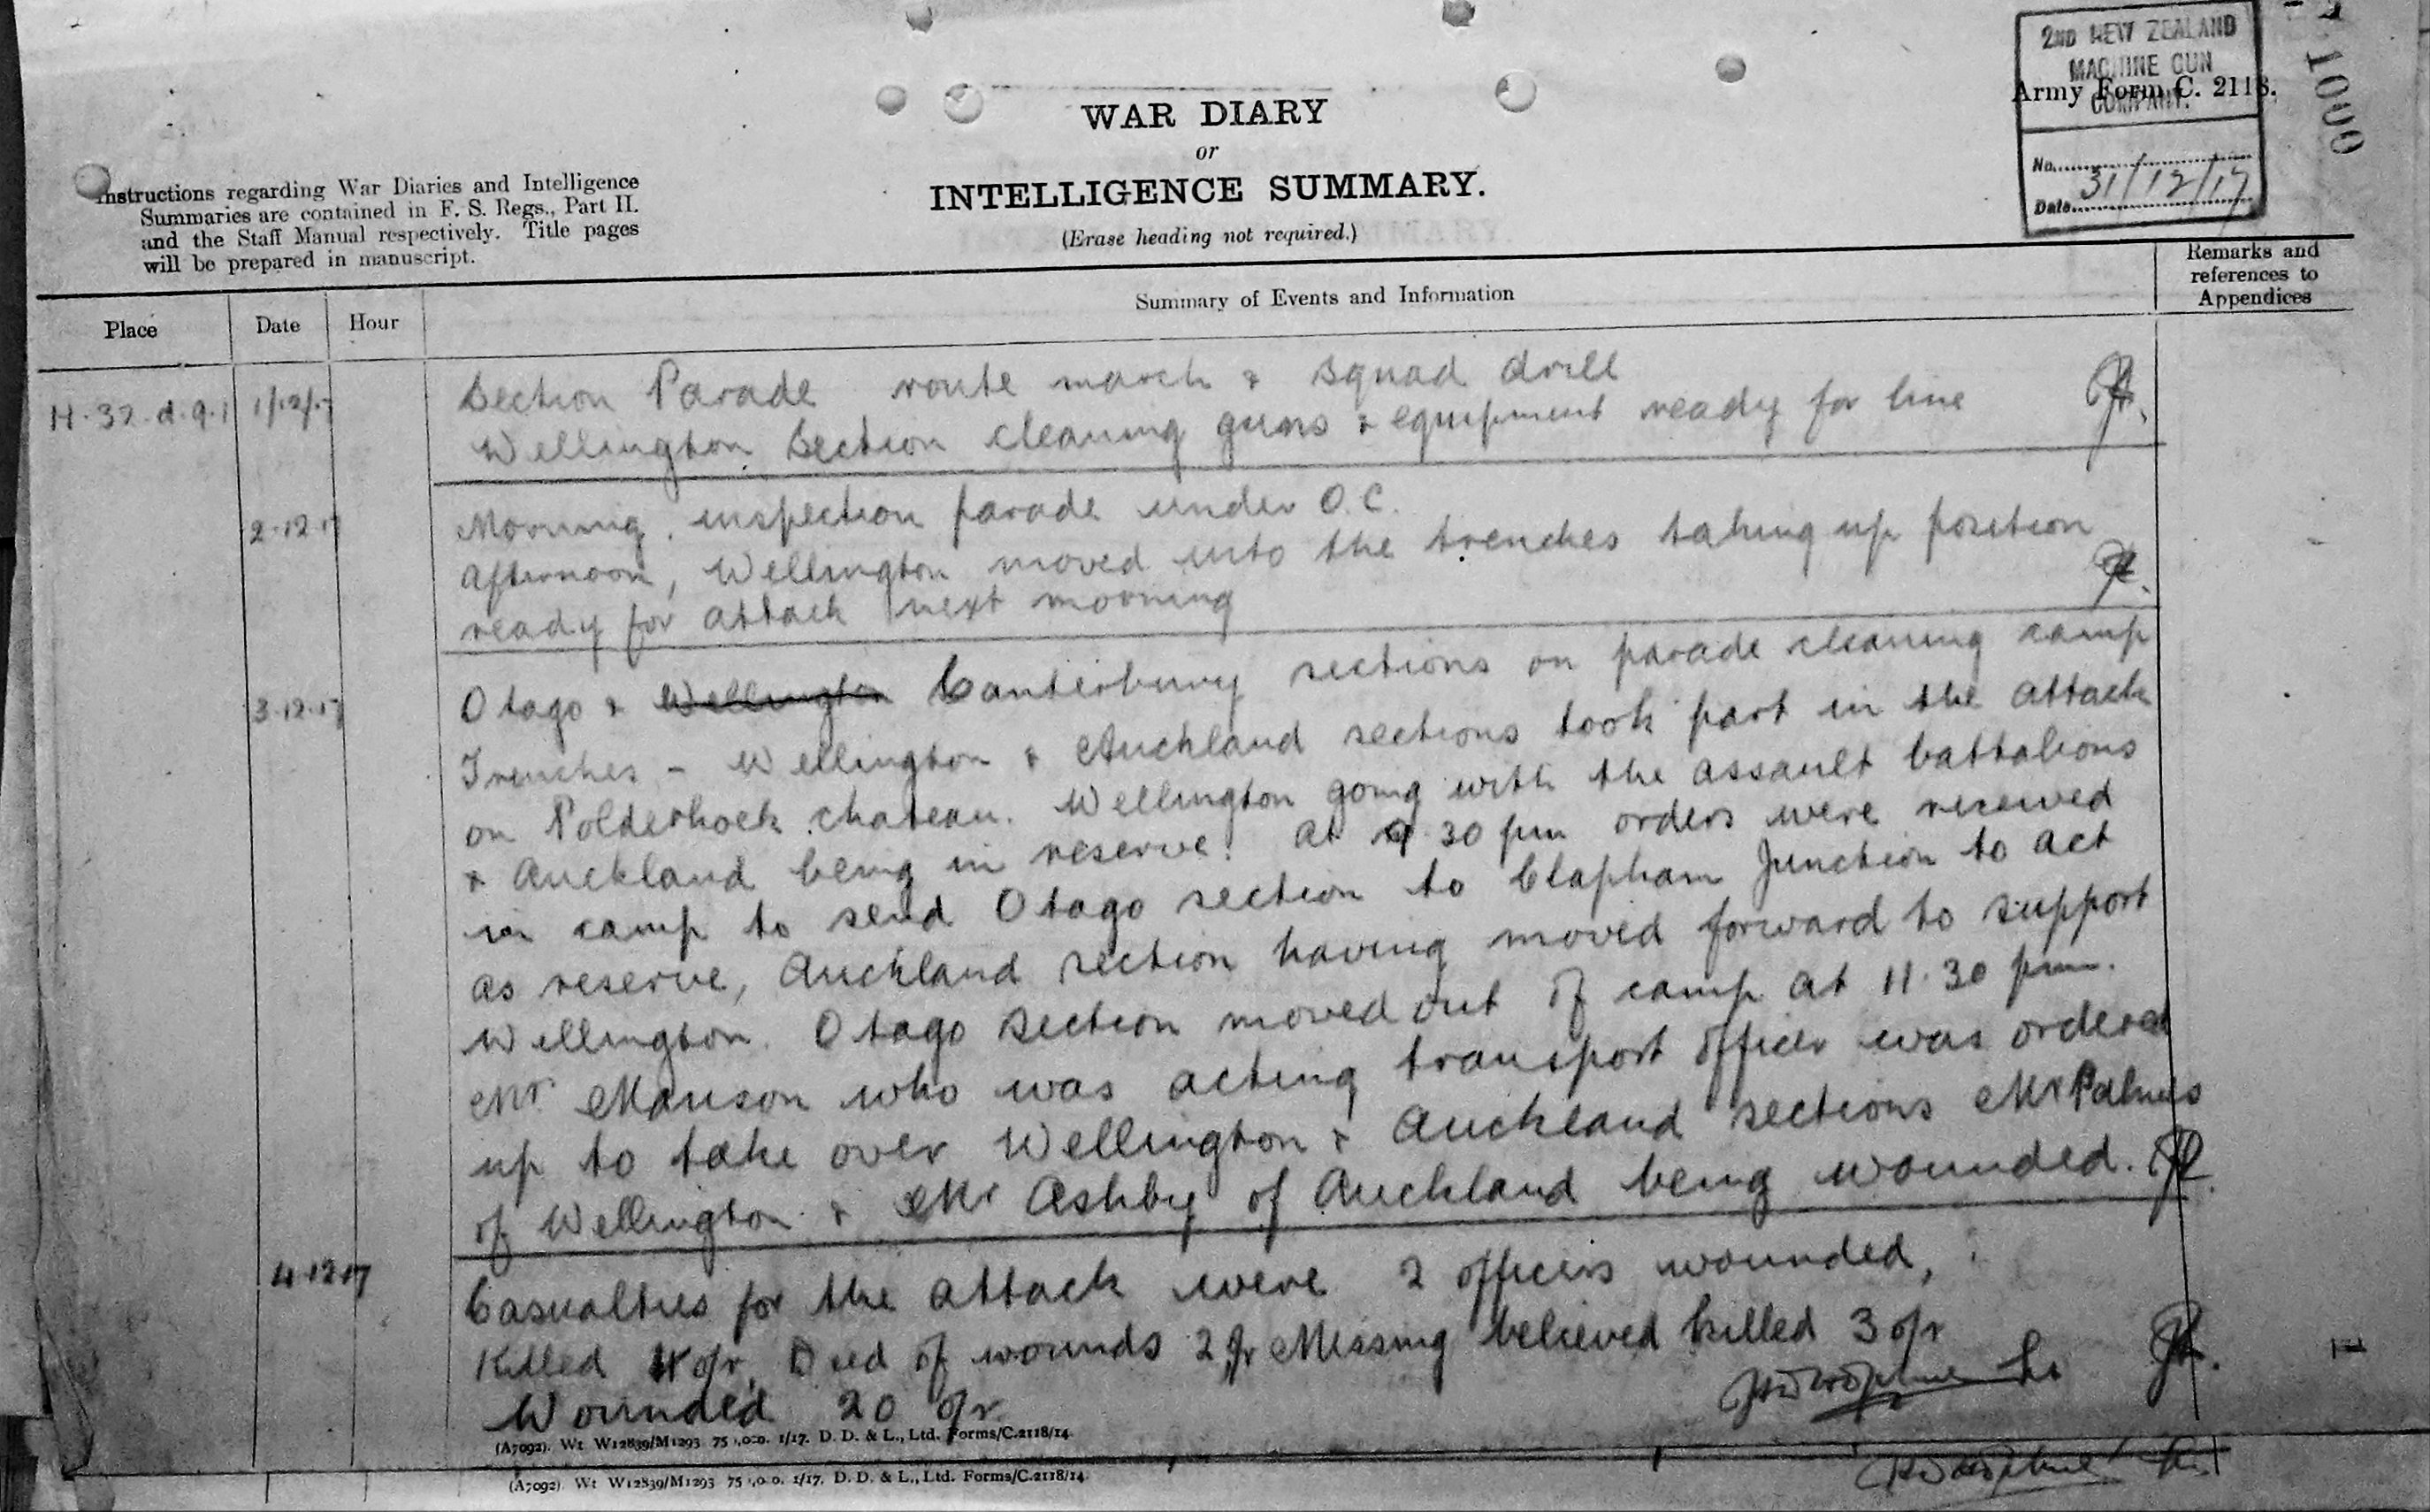 2ND NEW ZEALAND
MACHINE GUN
COMPANY.
Army Form C. 2118.
No.
Date 31/12/17
1000
WAR DIARY
or
INTELLIGENCE SUMMARY.
(Erase heading not required.)
Instructions regarding War Diaries and Intelligence
Summaries are contained in F. S. Regs., Part II.
and the Staff Manual respectively. Title pages
will be prepared in manuscript.
Place Date Hour Summary of Events and Information Remarks and references to Appendices
H.32.d.9.1 1/12/17 Section Parade route march & squad drill
Wellington Section cleaning guns & equipment ready for line
2.12.17 Morning, inspection parade under O.C.
Afternoon, Wellington moved into the trenches taking up position
ready for attack next morning
3.12.17 Otago & Wellington Canterbury sections on parade cleaning camp
Trenches - Wellington & Auckland sections took part in the attack
on Polderhoek chateau. Wellington going with the assault battalions
& Auckland being in reserve. At 9.30 pm orders were received
in camp to send Otago section to Clapham Junction to act
as reserve, Auckland section having moved forward to support
Wellington. Otago section moved out of camp at 11.30 pm.
Mr. Manson who was acting transport officer was ordered
up to take over Wellington & Auckland sections Mr Palmer
of Wellington & Mr Ashby of Auckland being wounded.
4.12.17 Casualties for the attack were 2 officers wounded,
Killed o/r, Died of wounds 2 o/r Missing believed killed 3 o/r
Wounded 20 o/r
(A7092). Wt W12839/M1293 75 ,000. 1/17. D. D. & L., Ltd. Forms/C.2118/14.
(A7092). Wt W12839/M1293 75 ,000. 1/17. D. D. & L., Ltd. Forms/C.2118/14.